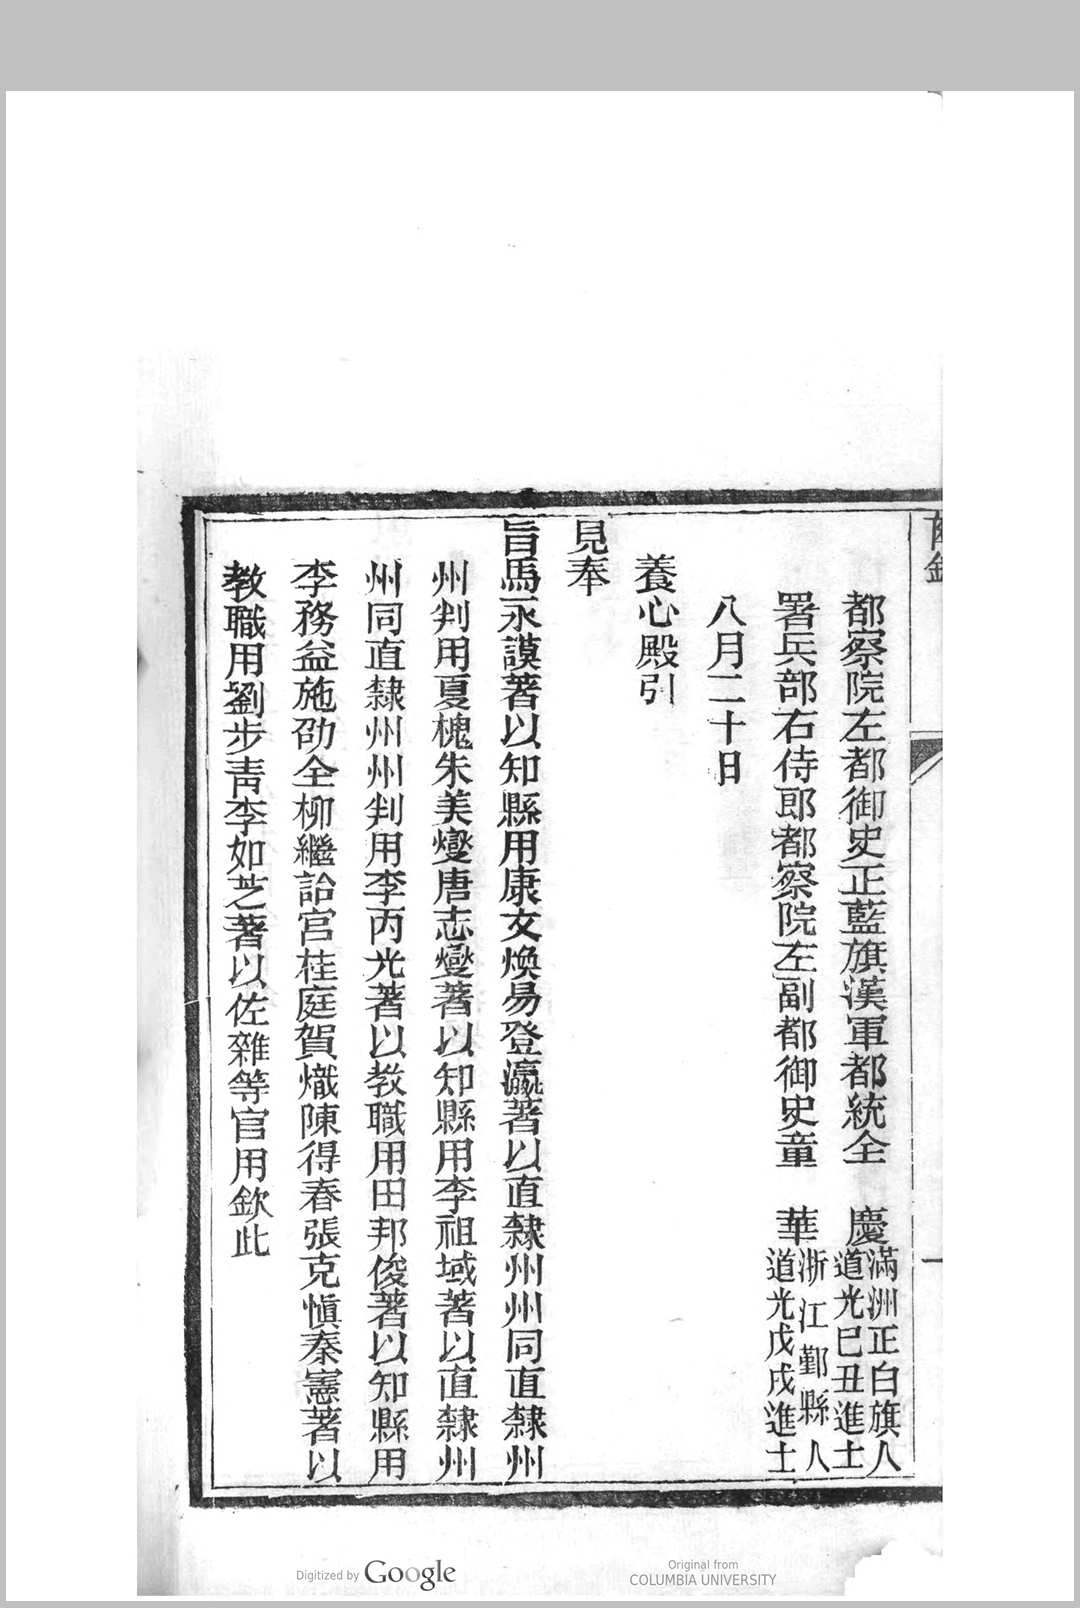 都察院左都御史正藍旗漢軍都統全　慶滿洲正白旗人道光巳丑進士
署兵部右侍郎都察院左副都御史童　華浙江鄞縣人道光戊戌進士
八月二十日
養心殿引
見奉
旨馬永謨著以知縣用康文煥易登瀛著以直隸州州同直隸州
州判用夏槐朱美燮唐志燮著以知縣用李祖域著以直隸州
州同直隸州州判用李丙光著以教職用田邦俊著以知縣用
李務益施劭全柳繼詒宫桂庭賀熾陳得春張克愼秦憲著以
教職用劉步靑李如芝著以佐雜等官用欽此
Digitized by Google
Original from
COLUMBIA UNIVERSITY